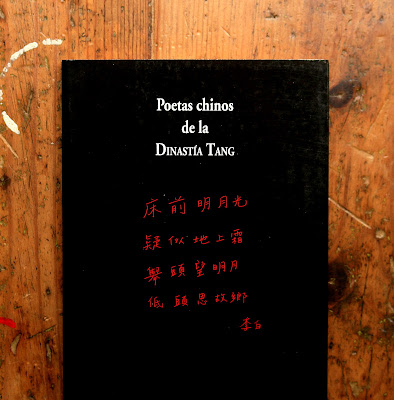 Poetas chinos
de la
DINASTÍA TANG
床前明月光
疑似地上霜
舉頭望明月
低頭思故鄉
李白